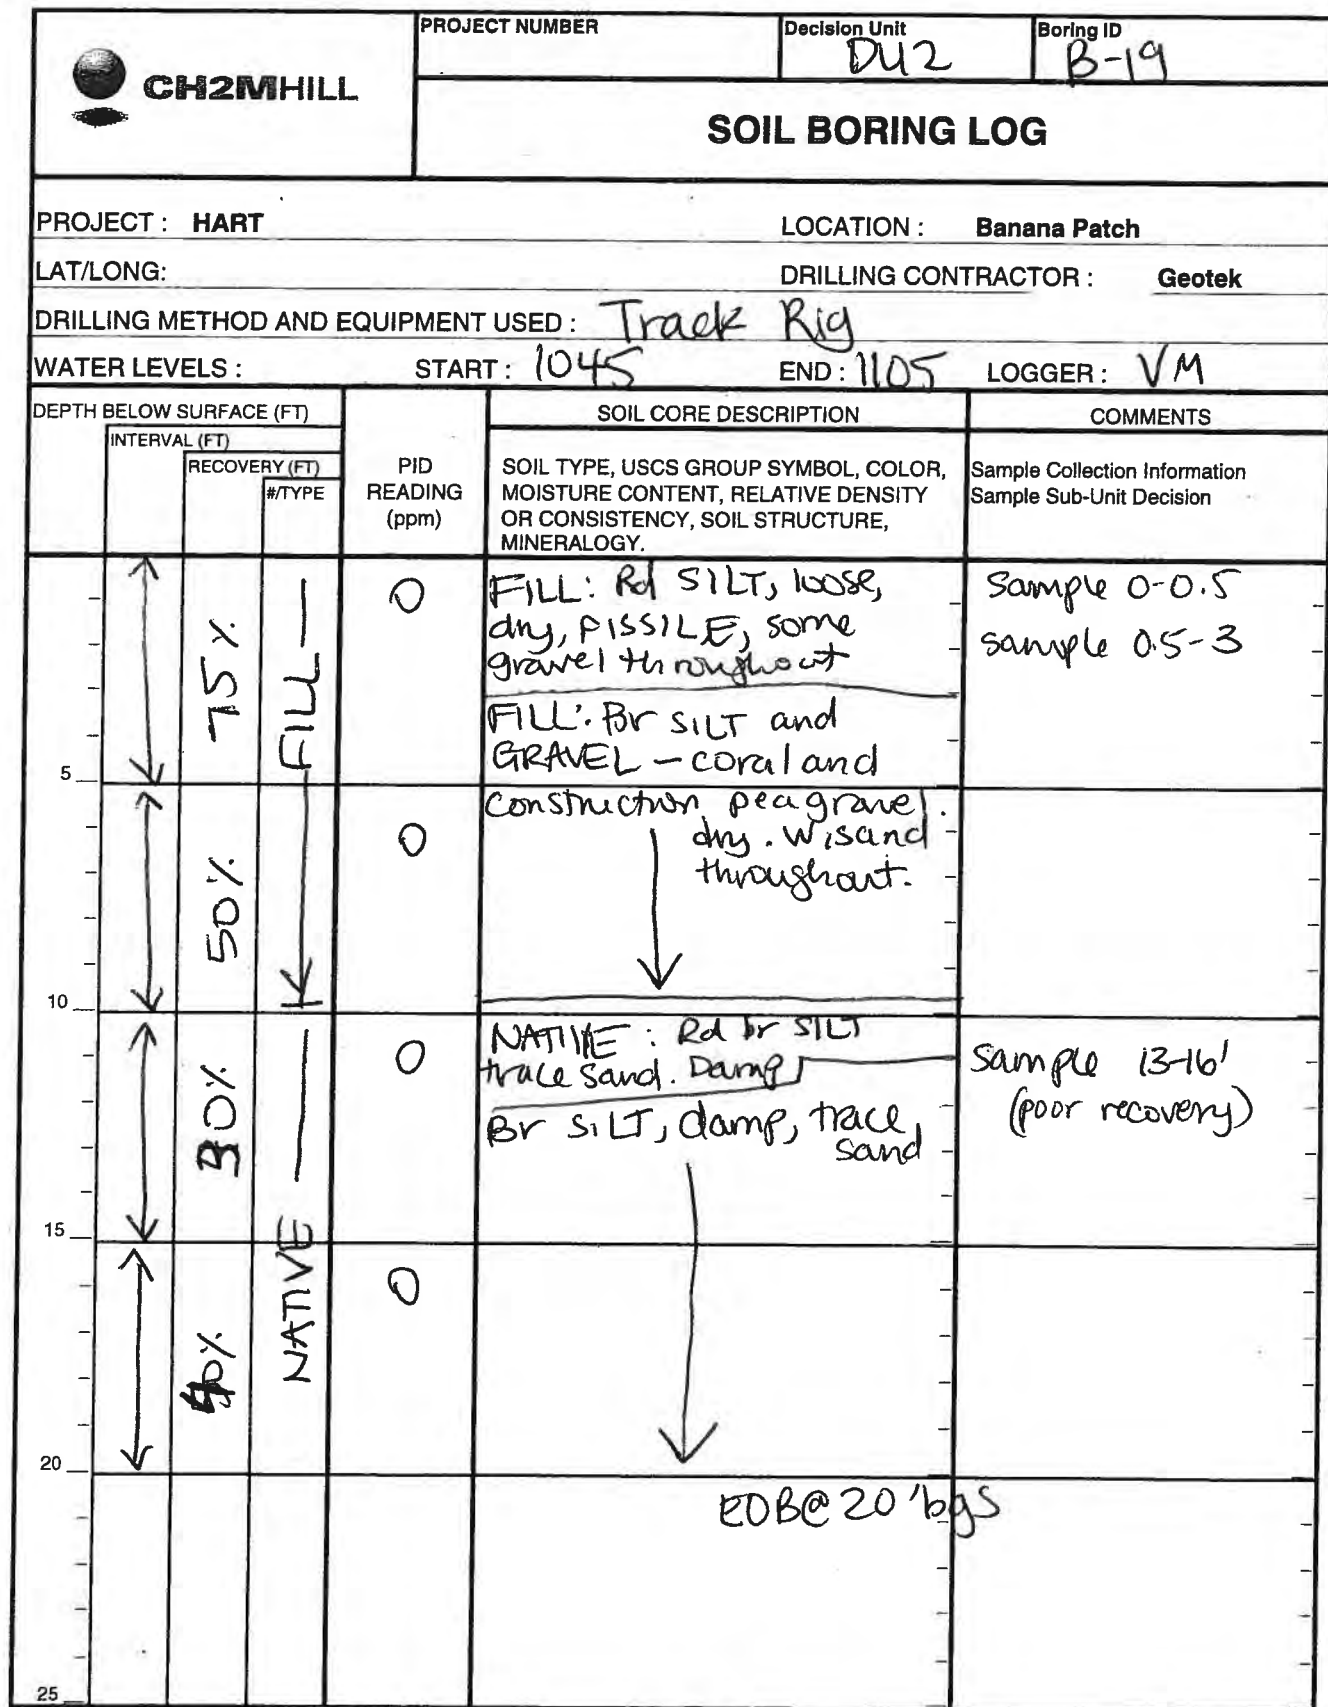 CH2MHILL
PROJECT NUMBER
Decision Unit
DU2
Boring ID
B-19
SOIL BORING LOG
PROJECT : HART
LOCATION : Banana Patch
LAT/LONG:
DRILLING CONTRACTOR : Geotek
DRILLING METHOD AND EQUIPMENT USED : Track Rig
WATER LEVELS :
START : 1045
END : 1105
LOGGER : VM
DEPTH BELOW SURFACE (FT)
INTERVAL (FT)
RECOVERY (FT)
#/TYPE
PID
READING
(ppm)
SOIL CORE DESCRIPTION
SOIL TYPE, USCS GROUP SYMBOL, COLOR,
MOISTURE CONTENT, RELATIVE DENSITY
OR CONSISTENCY, SOIL STRUCTURE,
MINERALOGY.
COMMENTS
Sample Collection Information
Sample Sub-Unit Decision
75%
FILL
0
FILL: Rd SILT, loose,
dry, FISSILE, some
gravel throughout
sample 0-0.5
sample 0.5-3
FILL: Br SILT and
GRAVEL - coral and
5
50%
0
construction pea gravel.
dry. w/sand
throughout.
10
30%
NATIVE
0
NATIVE: Rd br SILT
trace sand. Damp
Br SILT, damp, trace
sand
sample 13-16'
(poor recovery)
15
0
20
EOB@ 20' bgs
25